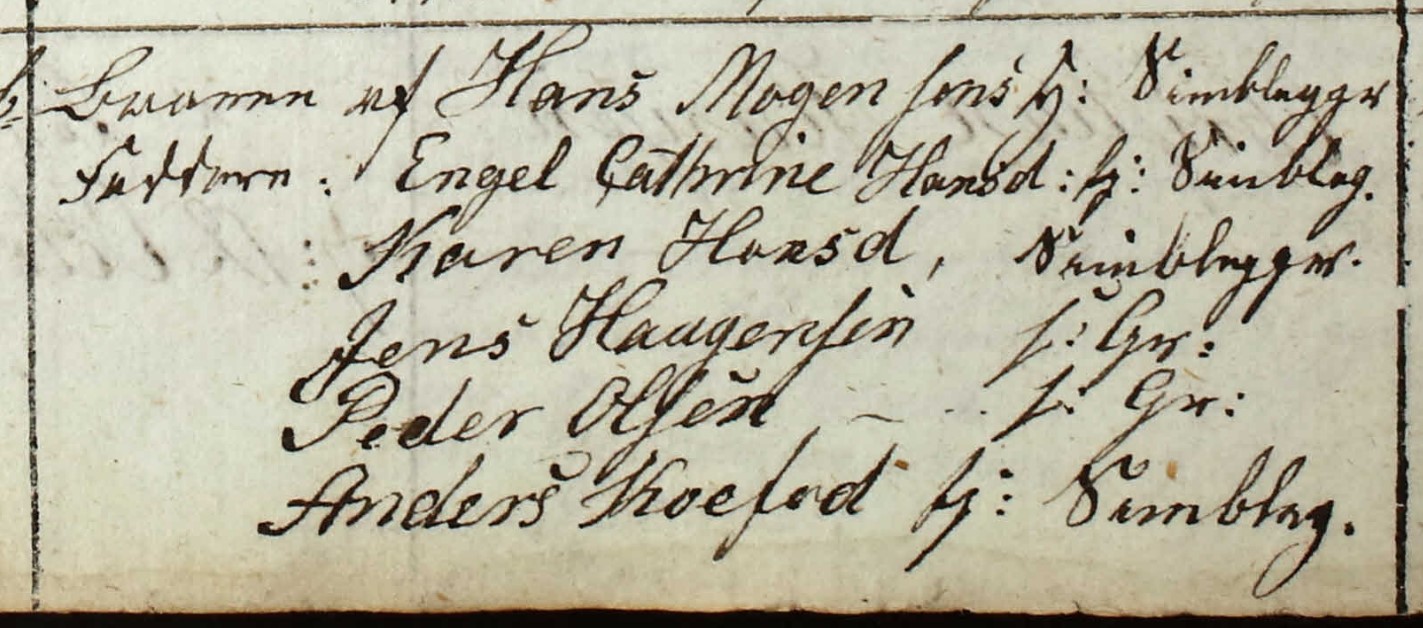 Baaren af Hans Mogensens H: Simblegger
Faddere: Engel Cathrine Hansd: H: Simbleg.
: Karen Hansd, Simblegger.
Jens Haagensen s: Gr:
Peder Olsen — s: Gr:
Anders Koefod H: Simbleg.